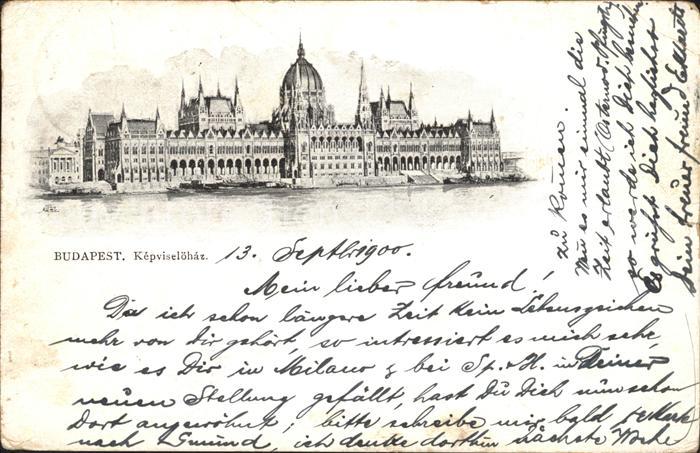 BUDAPEST. Képviselöház. 13. Septbr 1900.
Mein lieber Freund!
Da ich schon längere Zeit kein Lebenszeichen
mehr von Dir gehört, so intressiert es mich sehr,
wie es Dir in Milano & bei Sp. & H. in Deiner
neuen Stellung gefällt, hast Du Dich nun schon
Dort angewöhnt; bitte schreibe mir bald,
nach Gmünd, ich denke dorthin nächste Woche
zu kommen.
Wie es mir einmal die
Zeit erlaubt
so werde ich Dich
Es grüßt Dich herzlichst
Dein treuer freund